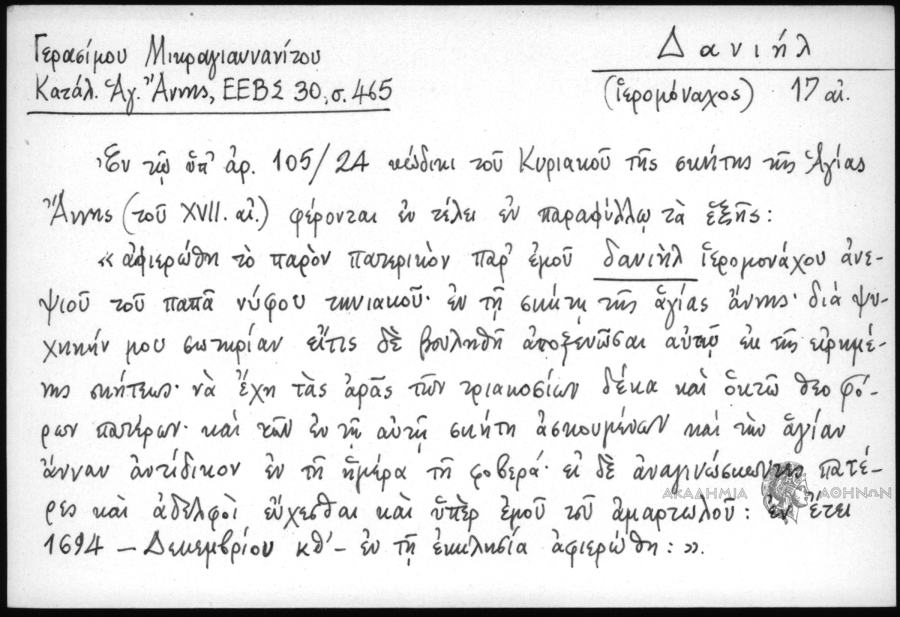 Γερασίμου Μικραγιαννανίτου
Δανιήλ
Κατάλ. Ἁγ. Ἄννης, ΕΕΒΣ 30, σ. 465
(ἱερομόναχος) 17 αἰ.
Ἐν τῷ ὑπ' ἀρ. 105/24 κώδικι τοῦ Κυριακοῦ τῆς σκήτης τῆς Ἁγίας
Ἄννης (τοῦ XVII. αἰ.) φέρονται ἐν τέλει ἐν παραφύλλῳ τὰ ἑξῆς:
«ἀφιερώθη τὸ παρὸν πατερικὸν παρ' ἐμοῦ δανιὴλ ἱερομονάχου ἀνε-
ψιοῦ τοῦ παπᾶ νύφου τηνιακοῦ· ἐν τῇ σκήτῃ τῆς ἁγίας ἄννης· διά ψυ-
χηκήν μου σωτηρίαν εἴτις δὲ βουληθῆ ἀποξενῶσαι αὐτῷ ἐκ τῆς εἰρημέ-
νης σκήτεως· νὰ ἔχη τὰς ἀρᾶς τῶν τριακοσίων δέκα καὶ ὀκτῶ θεοφό-
ρων πατέρων· καὶ τῶν ἐν τῇ αὐτῇ σκήτη ἀσκουμένων καὶ τὴν ἁγίαν
ἄνναν ἀντίδικον ἐν τῆ ἡμέρα τῆ φοβερά· εἰ δὲ ἀναγινώσκωντες πατέ-
ρες καὶ ἀδελφοὶ εὔχεσθαι καὶ ὑπὲρ ἐμοῦ τοῦ ἁμαρτωλοῦ: ἐν ἔτει
1694 – Δεκεμβρίου κθ' – ἐν τῇ ἐκκλησία ἀφιερώθη:».
ΑΚΑΔΗΜΙΑ ΑΘΗΝΩΝ